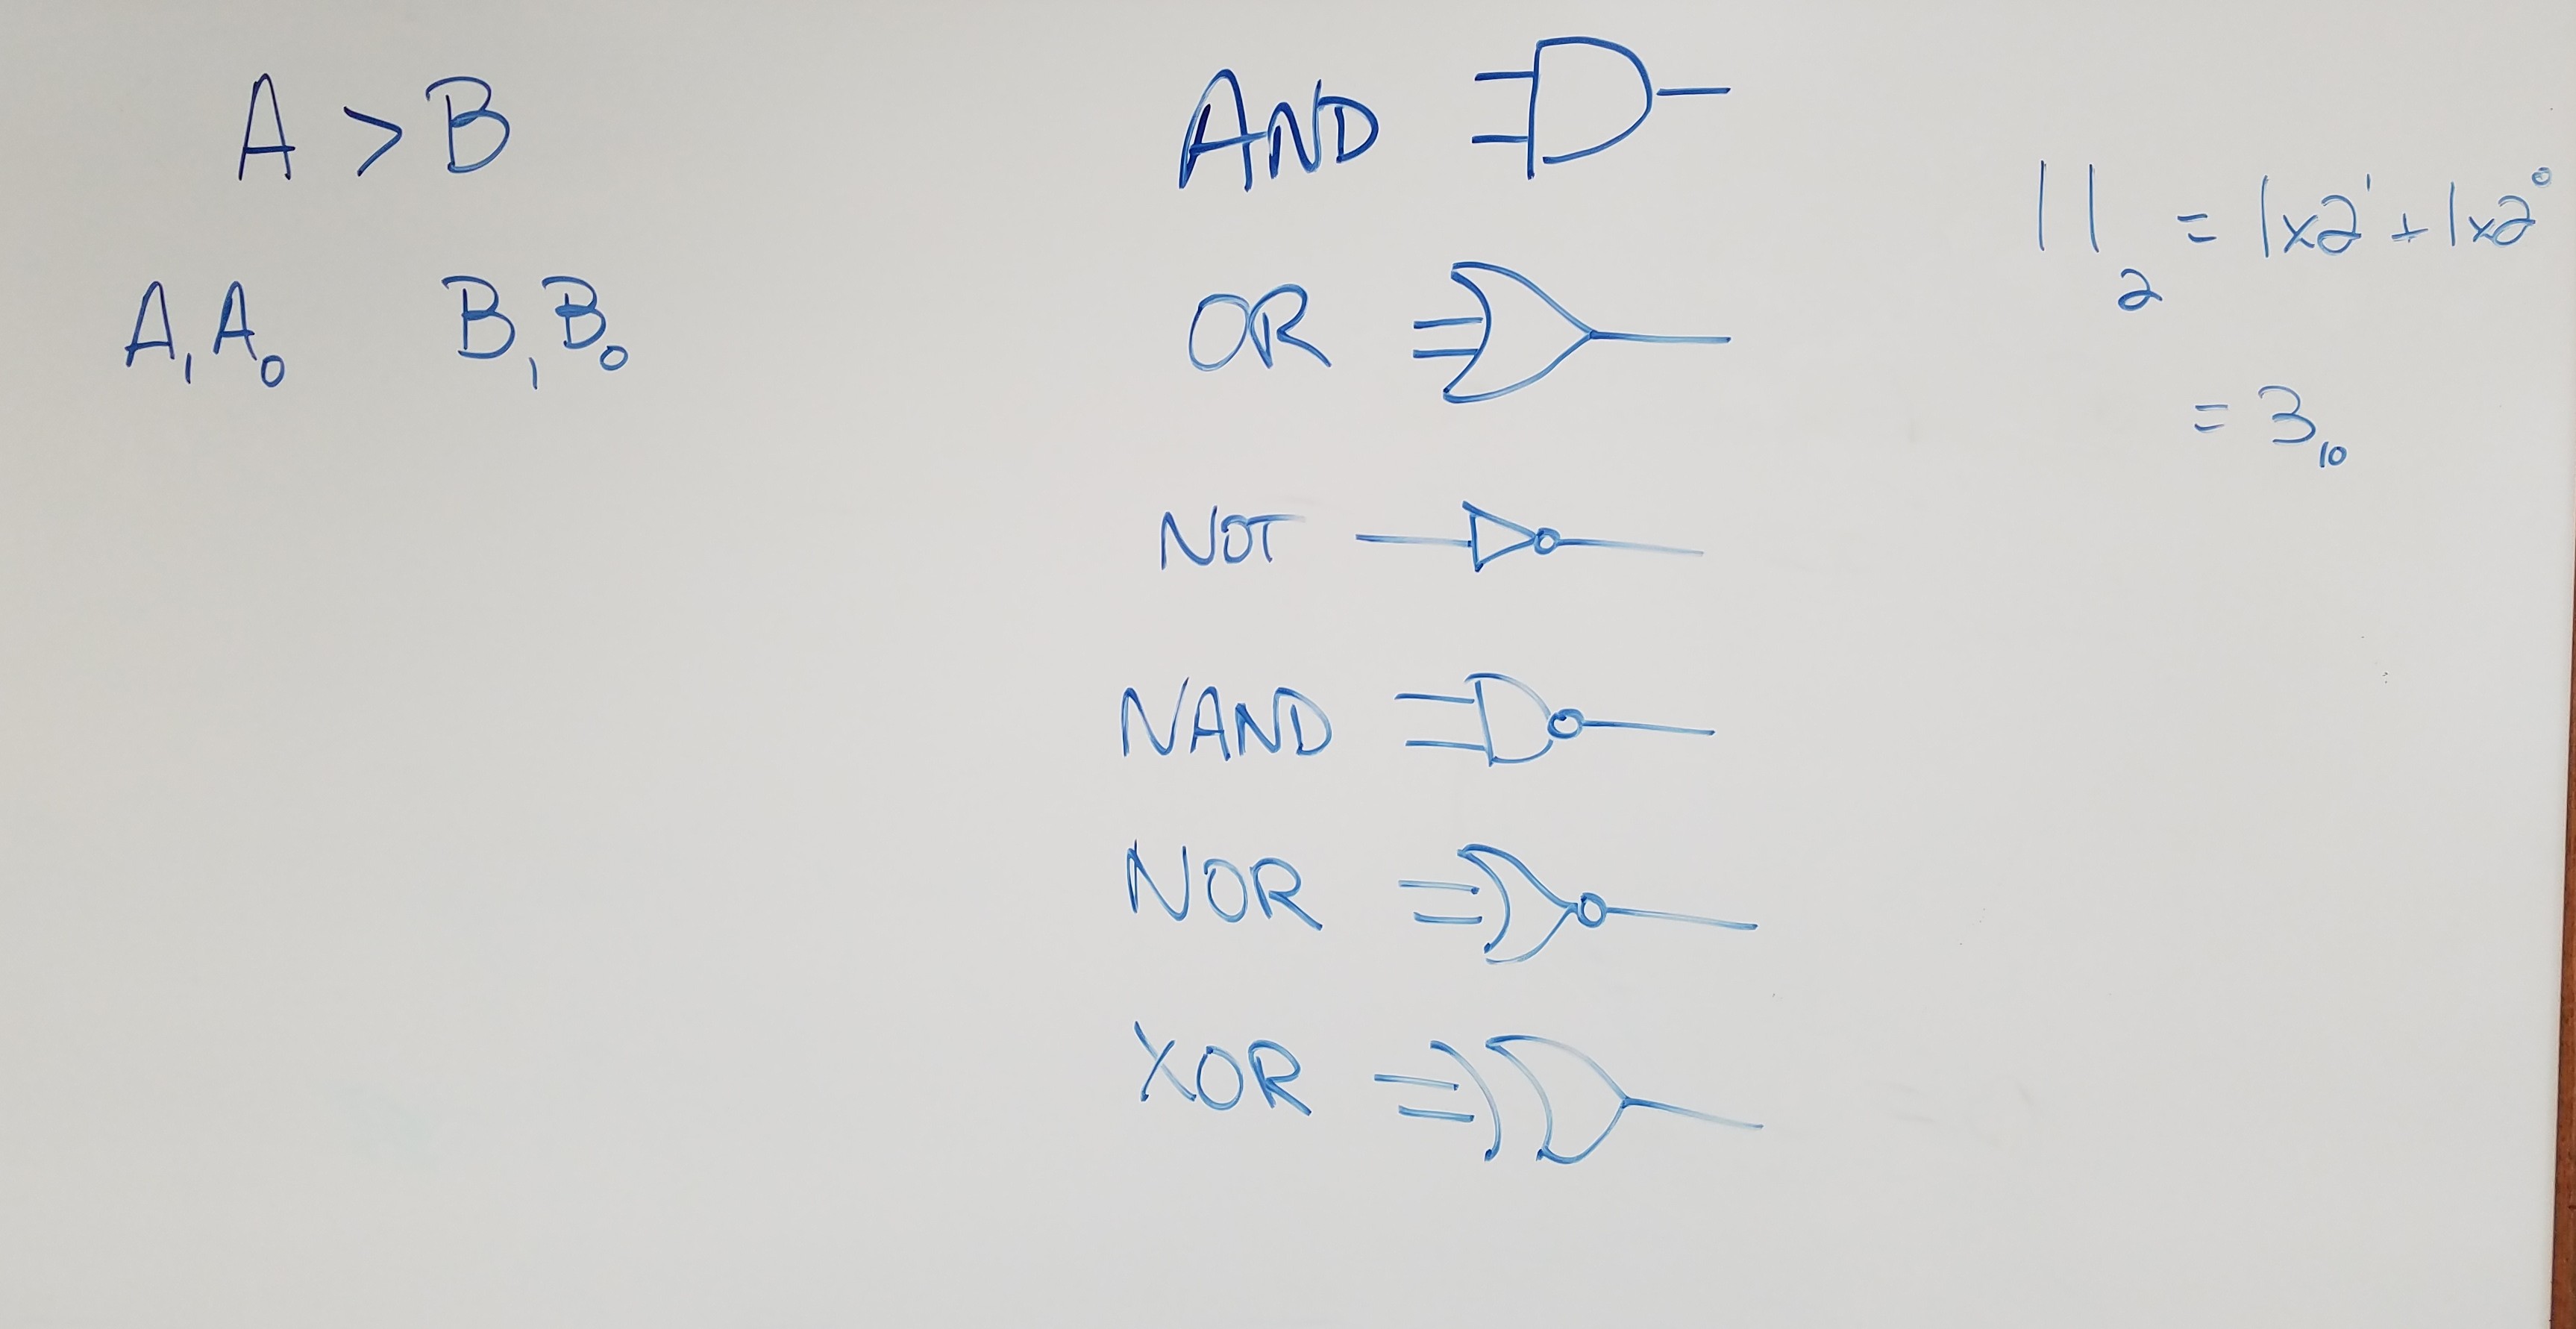 A > B
A₁A₀ B₁B₀
AND
OR
NOT
NAND
NOR
XOR
11₂ = 1x2¹ + 1x2⁰
= 3₁₀